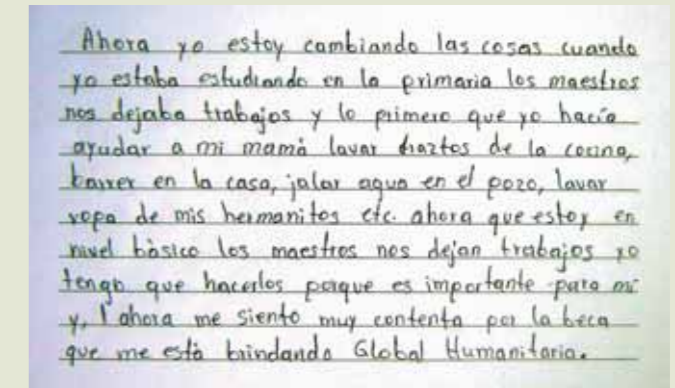 Ahora yo estoy cambiando las cosas cuando
yo estaba estudiando en la primaria los maestros
nos dejaba trabajos y lo primero que yo hacía
ayudar a mi mamá lavar traztos de la cocina,
barrer en la casa, jalar agua en el pozo, lavar
ropa de mis hermanitos etc. ahora que estoy en
nivel básico los maestros nos dejan trabajos yo
tengo que hacerlos porque es importante para mi
y, ahora me siento muy contenta por la beca
que me está brindando Global Humanitaria.